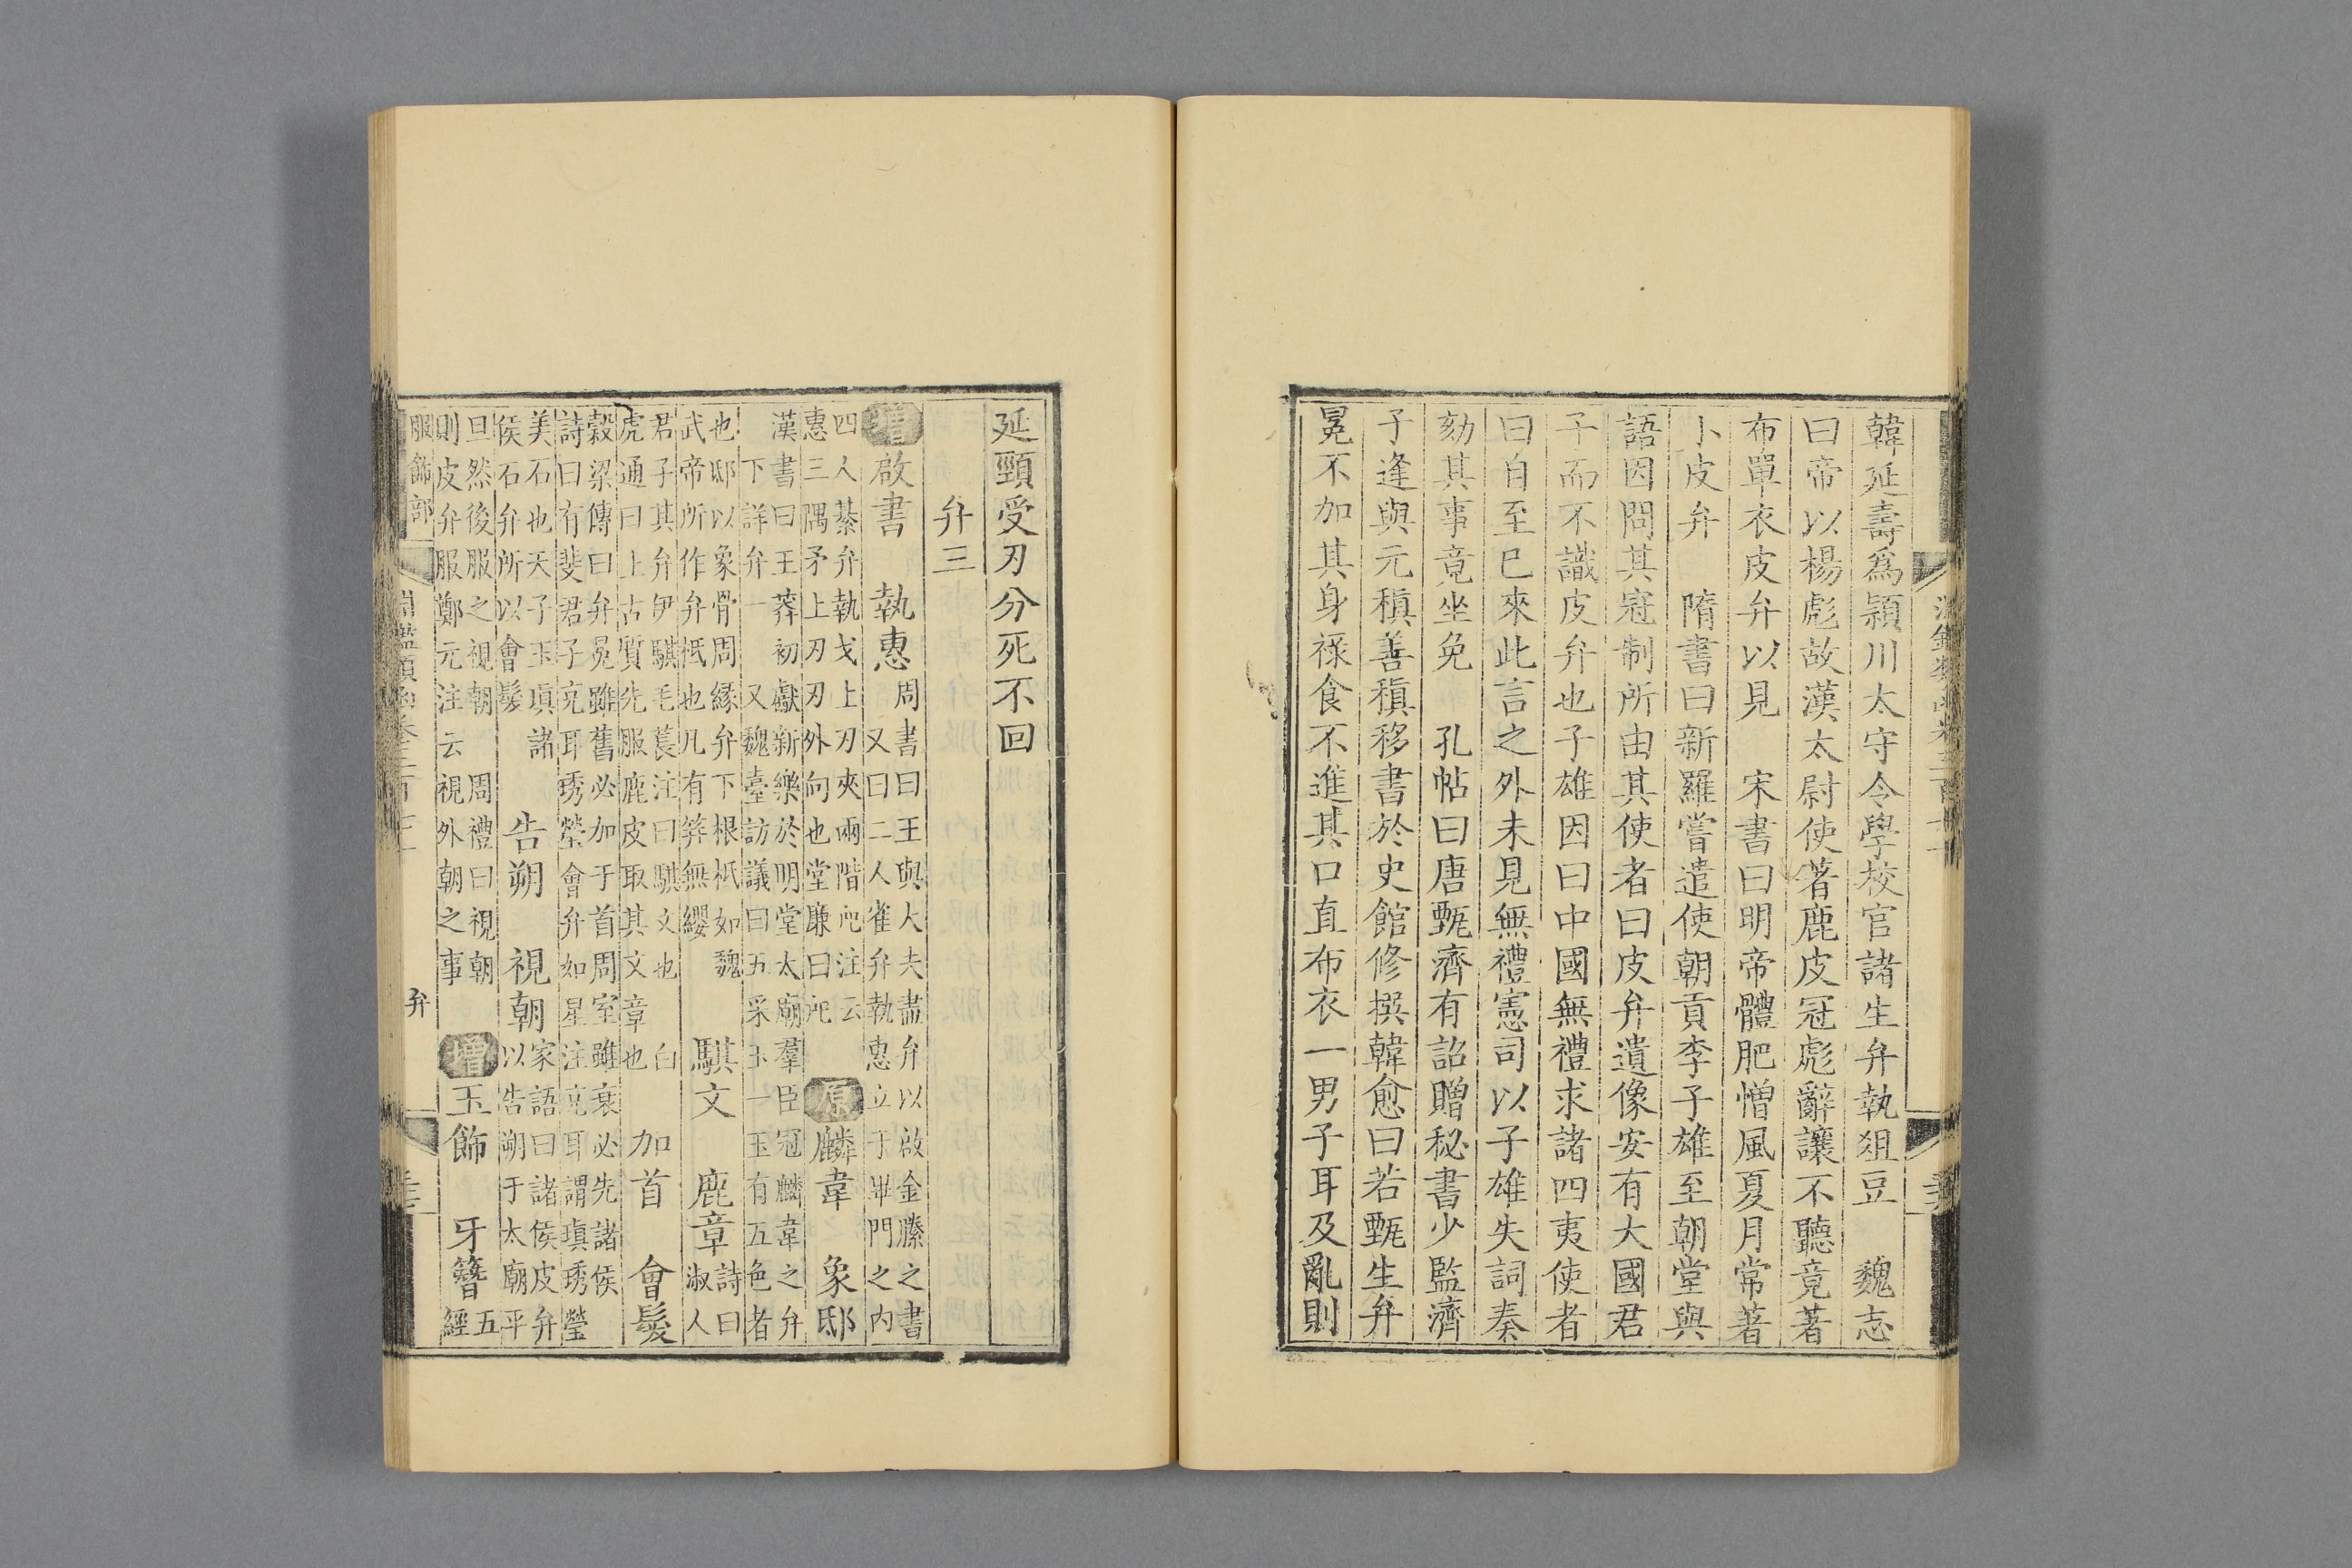 韓延壽爲潁川太守令學校官諸生弁執俎豆　魏志
曰帝以楊彪故漢太尉使著鹿皮冠彪辭讓不聽竟著
布單衣皮弁以見　宋書曰明帝體肥憎風夏月常著
小皮弁　隋書曰新羅嘗遣使朝貢李子雄至朝堂與
語因問其冠制所由其使者曰皮弁遺像安有大國君
子而不識皮弁也子雄因曰中國無禮求諸四夷使者
曰自至已來此言之外未見無禮憲司以子雄失詞奏
劾其事竟坐免　孔帖曰唐甄濟有詔贈秘書少監濟
子逢與元稹善稹移書於史館修撰韓愈曰若甄生弁
冕不加其身祿食不進其口直布衣一男子耳及亂則
延頸受刃分死不回
弁三
增啟書　執惠周書曰王與大夫盡弁以啟金縢之書
又曰二人雀弁執惠立于畢門之內
四人綦弁執戈上刃夾兩階戺注云
惠三隅矛上刃刃外向也堂廉曰戺原麟韋　象邸
漢書曰王莽初獻新樂於明堂太廟羣臣冠麟韋之弁
下詳弁一　又魏臺訪議曰五采玉一玉有五色者
也邸以象骨周緣弁下根柢如魏
武帝所作弁柢也凡有筓無纓騏文　鹿章詩曰
淑人
君子其弁伊騏毛萇注曰騏文也　白
虎通曰上古質先服鹿皮取其文章也加首　會髮
穀梁傳曰弁冕雖舊必加于首周室雖衰必先諸侯
詩曰有斐君子充耳琇瑩會弁如星注充耳謂瑱琇瑩
美石也天子玉瑱諸
侯石弁所以會髮告朔　視朝家語曰諸侯皮弁
以告朔于太廟平
旦然後服之視朝　周禮曰視朝
則皮弁服鄭元注云視外朝之事增玉飾　牙簪五
經
服飾部　淵鑑類函卷三百七十一　弁